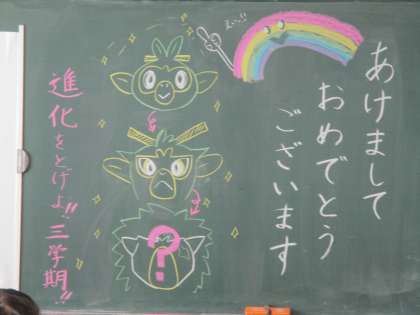 あけまして
おめでとう
ございます
進化をとげよ!!三学期!!
?